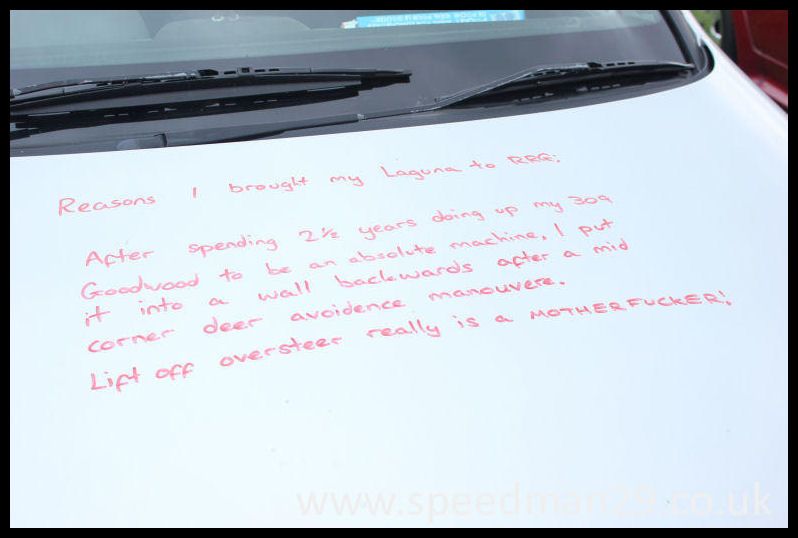 Reasons I brought my Laguna to RRG:
After spending 2½ years doing up my 309
Goodwood to be an absolute machine, I put
it into a wall backwards after a mid
corner deer avoidence manouvere.
Lift off oversteer really is a MOTHERFUCKER!
www.speedman29.co.uk